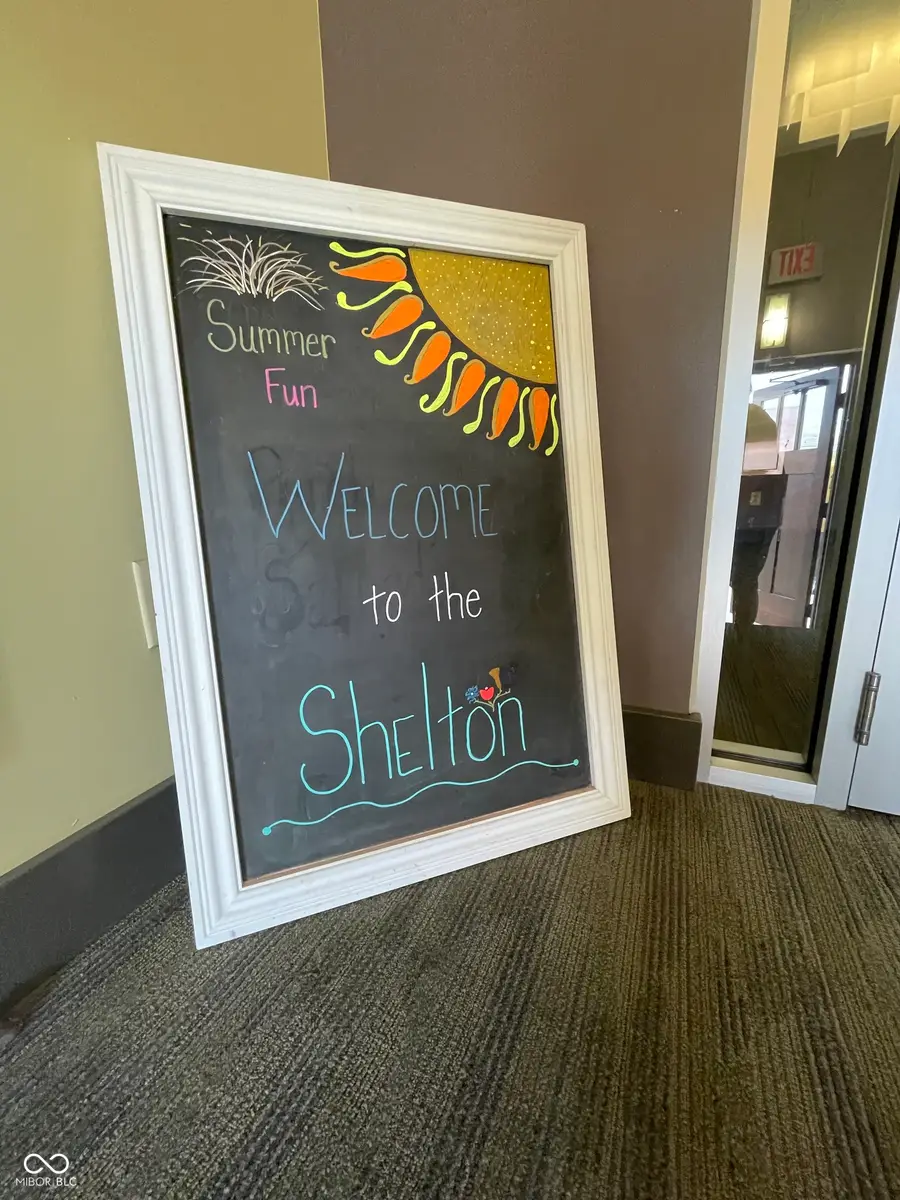 Summer
Fun
WELCOME
to the
Shelton
EXIT
MIBOR BLC